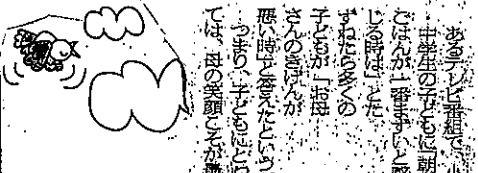 あるテレビ番組で、小
中学生の子どもに「朝
ごはんが一番まずいと感
じる時は」とた
ずねたら多くの
子どもが「お母
さんのきげんが
悪い時」と答えたという
つまり、子どもにとっ
ては、母の笑顔こそが最